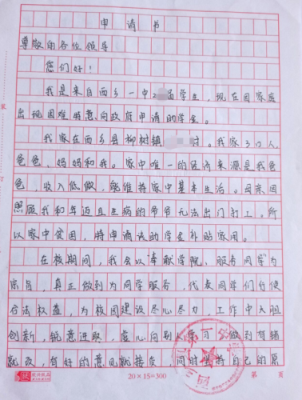 申请书
尊敬的各位领导
您们好！
我是来自西乡一中 届学生，现在因家庭
出现困难特意向政府申请助学金。
我家在西乡县柳树镇 村。我家3口人
爸爸，妈妈和我。家中唯一的经济来源是我爸
爸，收入低微，能维持家中基本生活。母亲因
照顾我和年迈且生病的爷爷无法出门打工。所
以家中贫困，特申请该助学金补贴家用。
在校期间，我会以奉献学院，服务同学为
宗旨，真正做到为同学服务，代表同学们行使
合法权益，为校园建设尽心尽力，工作中大胆
创新，锐意进取，虚心向别 做到有错
就改，有好的意见就接受，同时坚持自己的原
20×15=300
第 页